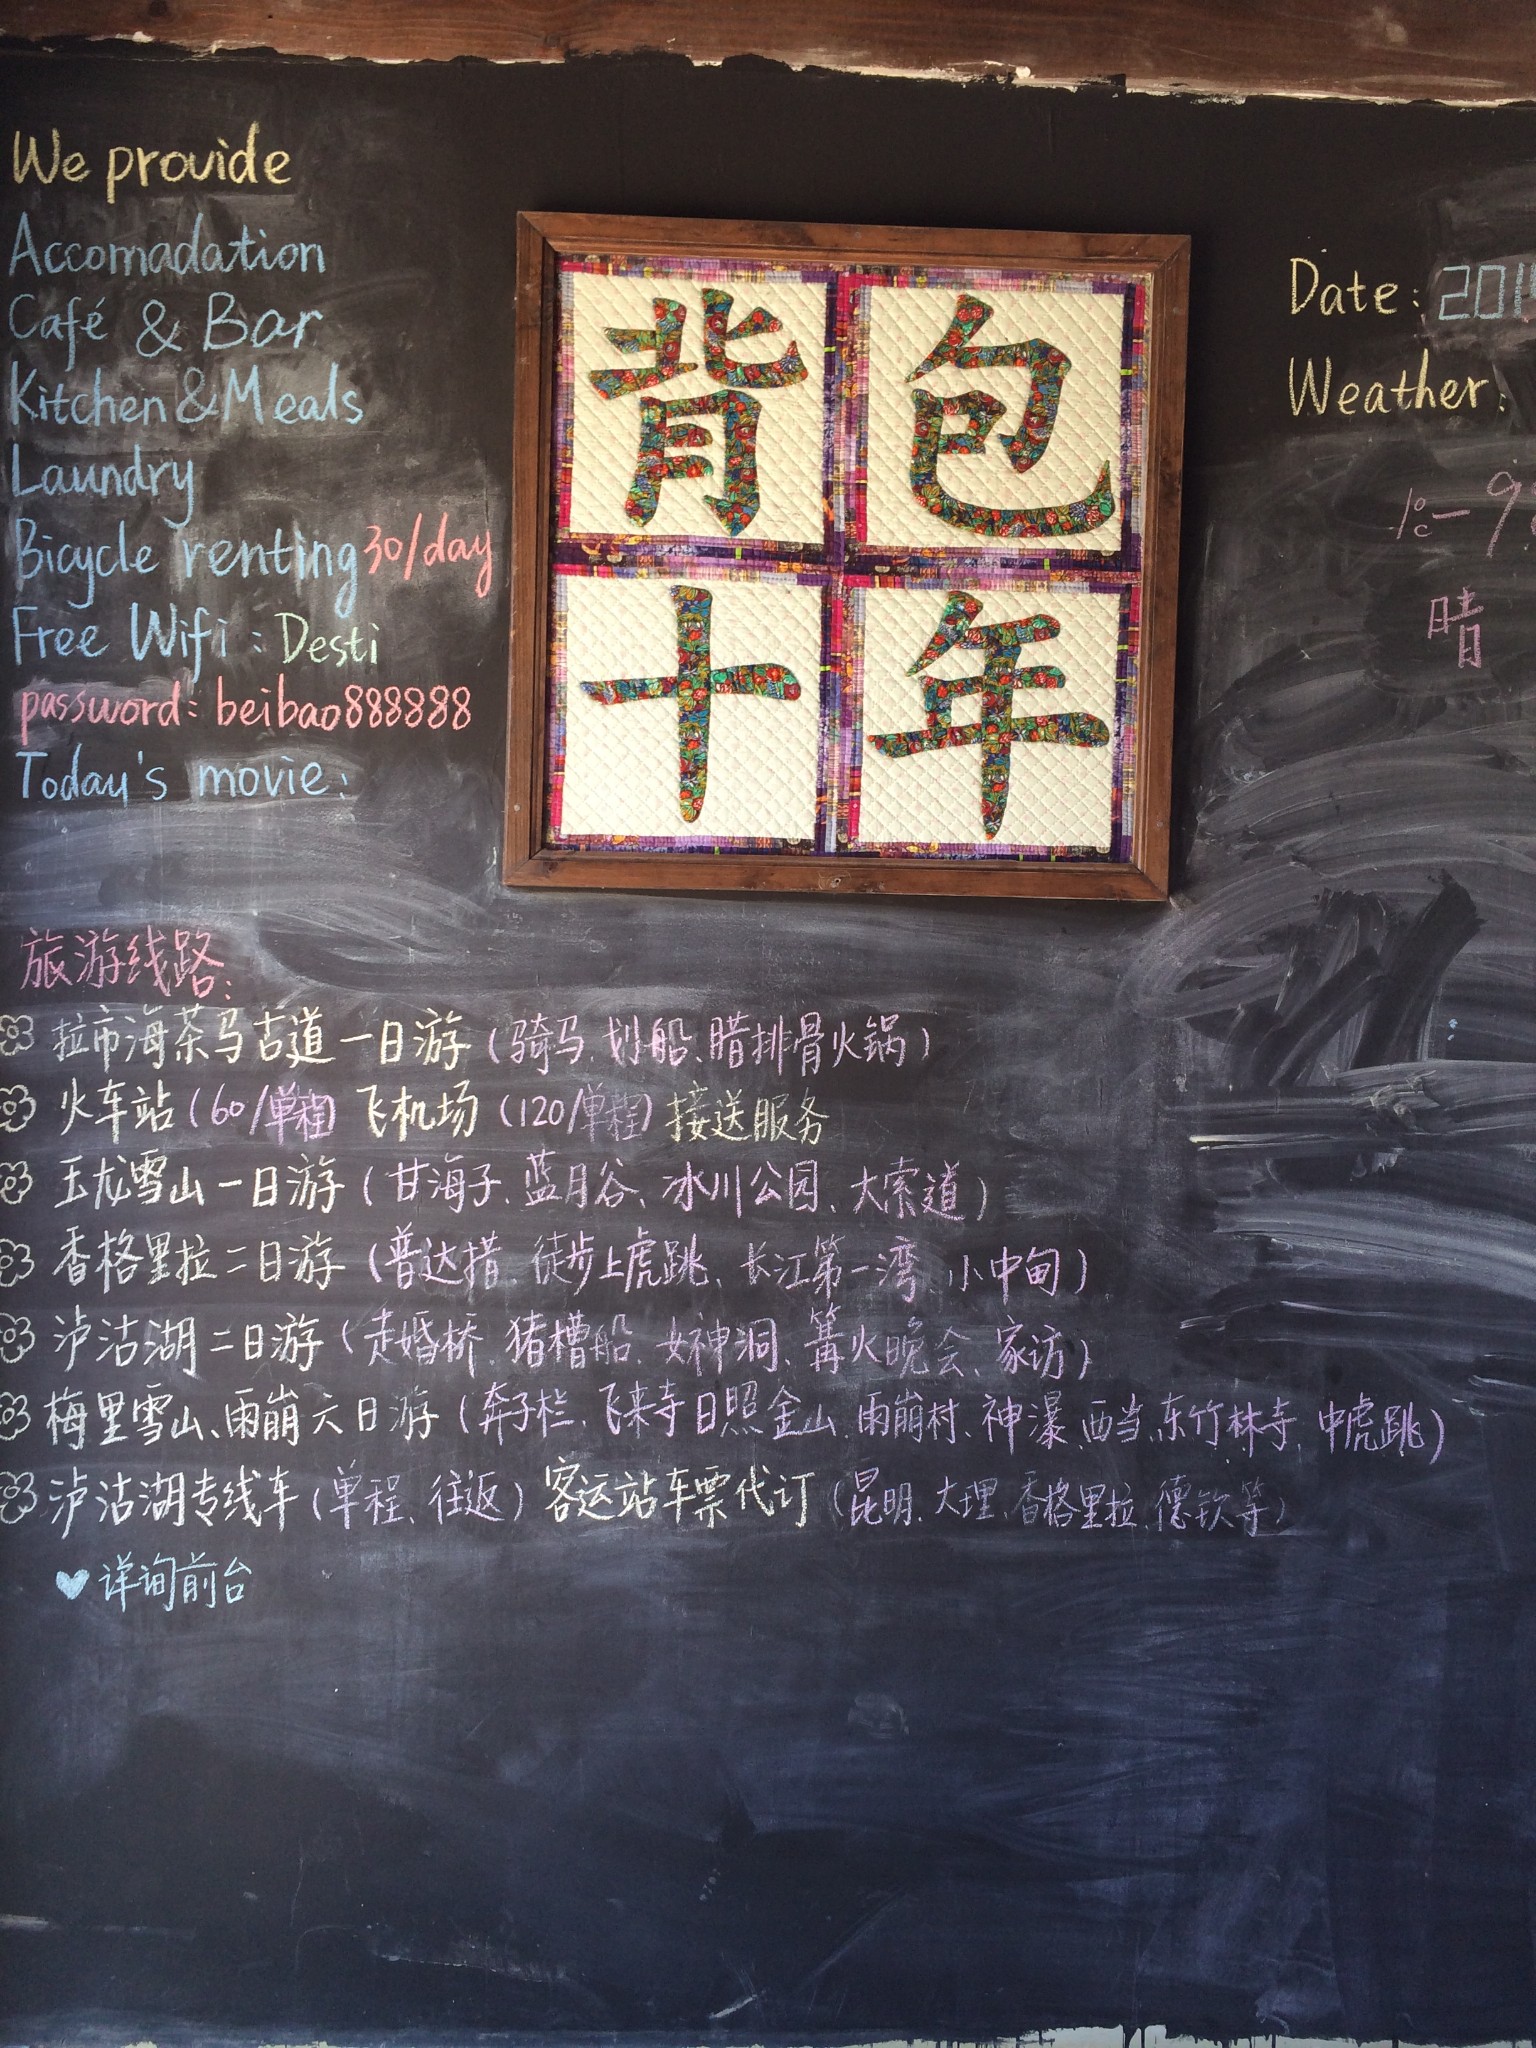 We provide
Accomadation
Café & Bar
Kitchen & Meals
Laundry
Bicycle renting 30/day
Free Wifi : Desti
password: beibao888888
Today's movie:
背包
十年
Date:
Weather:
晴
旅游线路:
拉市海茶马古道一日游(骑马、划船、腊排骨火锅)
火车站(60/单程) 飞机场(120/单程)接送服务
玉龙雪山一日游(甘海子、蓝月谷、冰川公园、大索道)
香格里拉二日游(普达措、徒步上虎跳、长江第一湾、小中甸)
泸沽湖二日游(走婚桥、猪槽船、女神洞、篝火晚会、家访)
梅里雪山、雨崩六日游(奔子栏、飞来寺日照金山、雨崩村、神瀑、西当、东竹林寺、中虎跳)
泸沽湖专线车(单程、往返)客运站车票代订(昆明、大理、香格里拉、德钦等)
♥详询前台